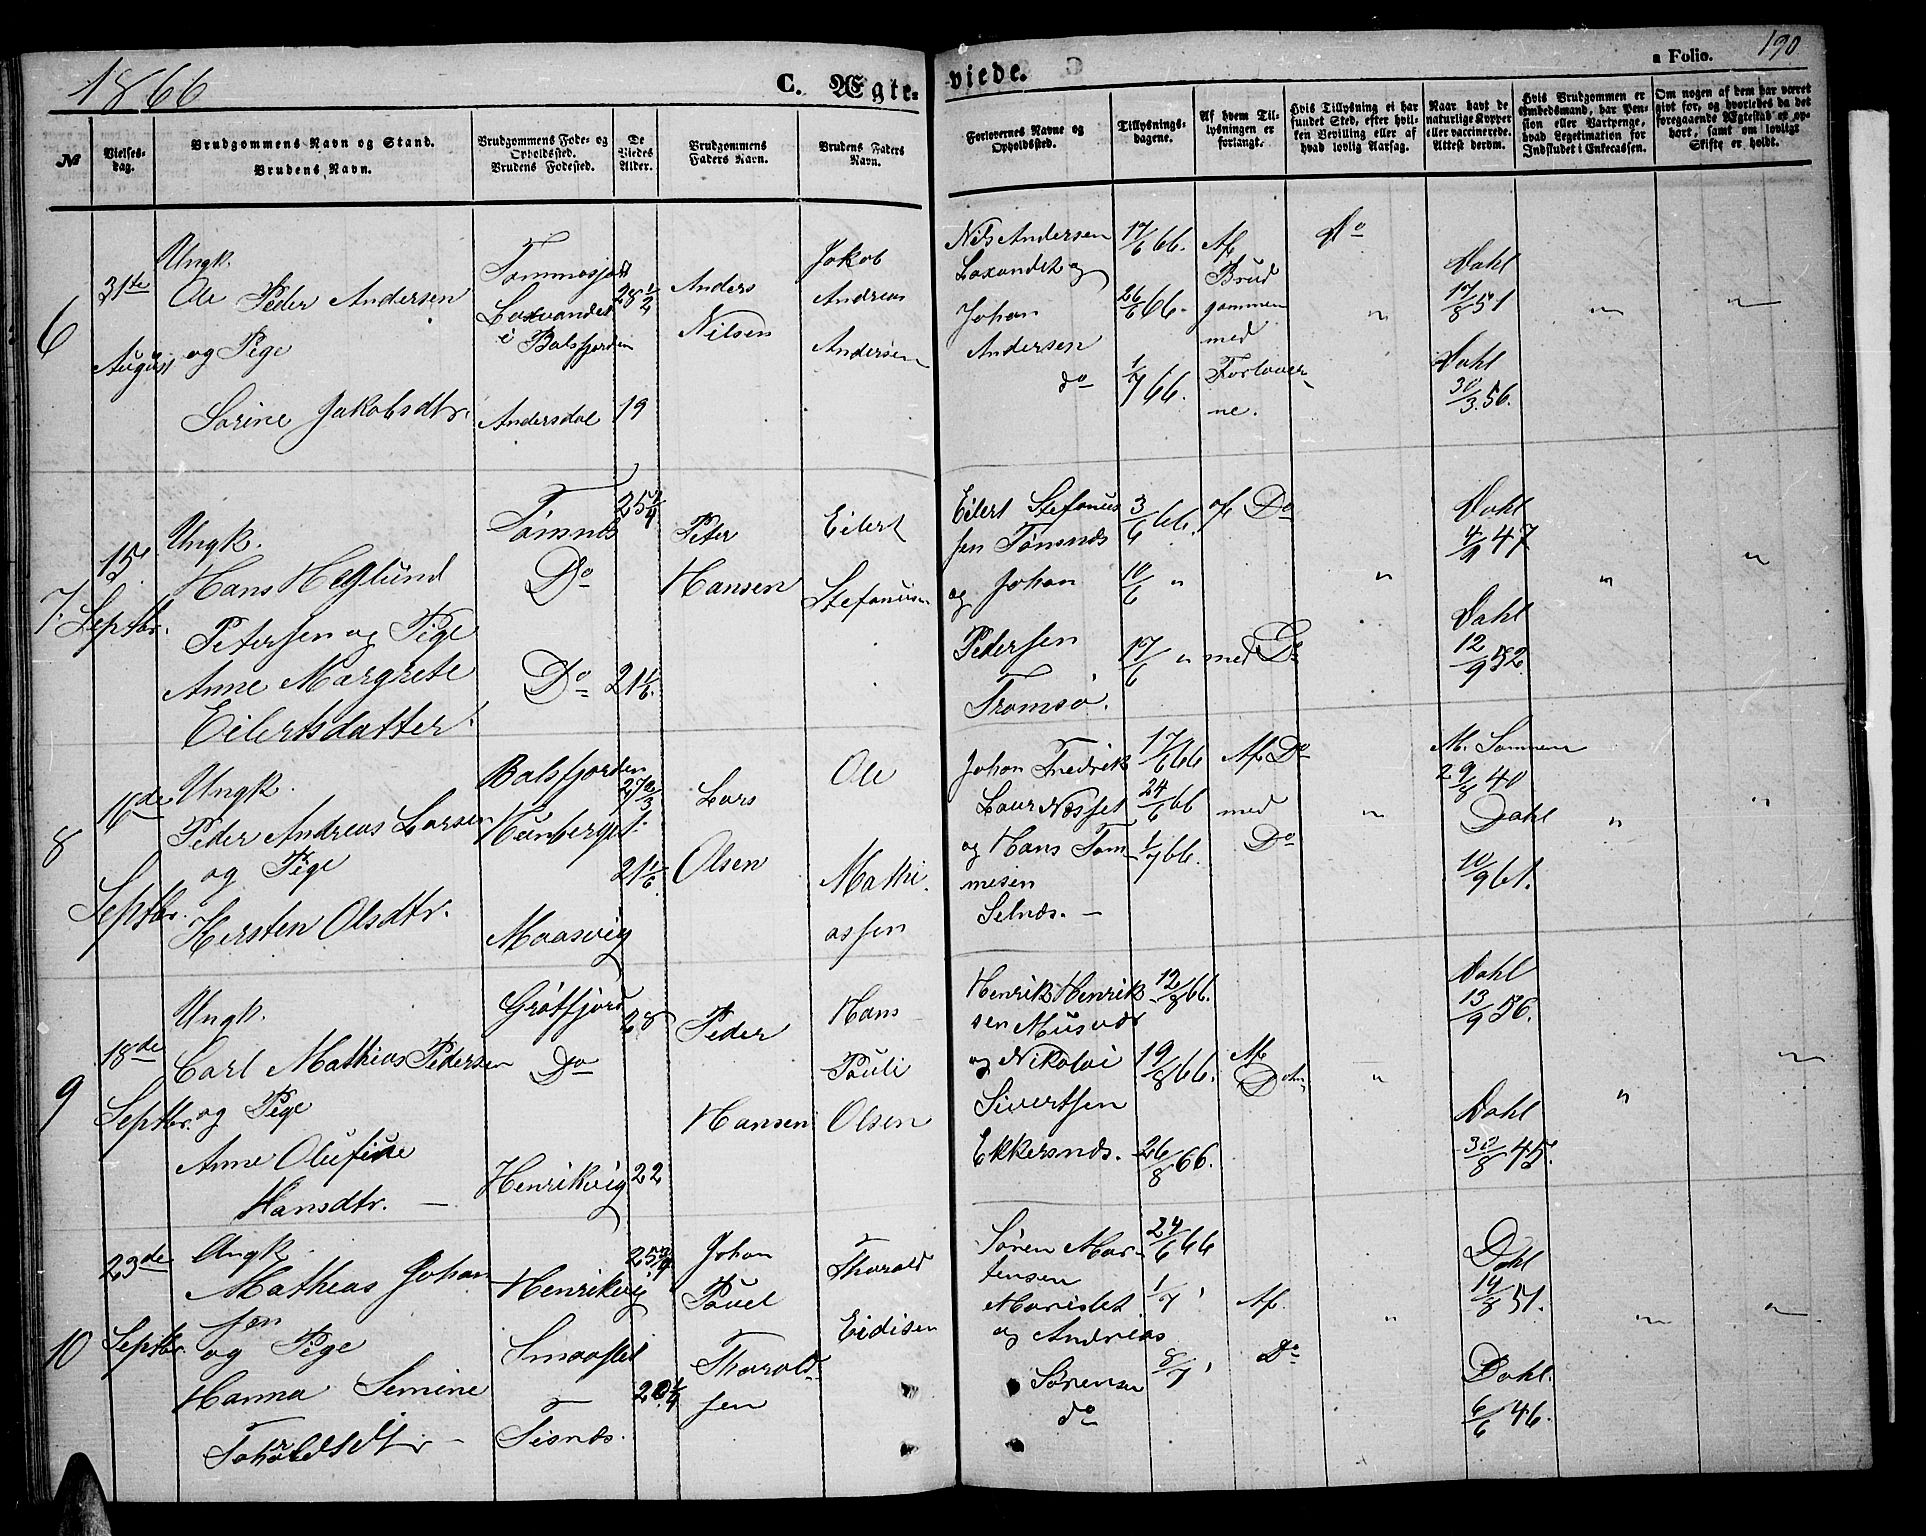 1866
C. Ægte-
viede.
a Folio.
190
№
Vielses-
dag.
Brudgommens Navn og Stand.
Brudens Navn.
Brudgommens Føde- og
Opholdssted.
Brudens Fødested.
De
Viedes
Alder.
Brudgommens
Faders Navn.
Brudens Faders
Navn.
Forlovernes Navne og
Opholdssted.
Tillysnings-
dagene.
Af hvem Til-
lysningen er
forlangt.
Hvis Tillysning ei har
fundet Sted, efter hvil-
ken Bevilling eller af
hvad lovlig Aarsag.
Naar havt de
naturlige Kopper
eller vaccinerede.
Attest derom.
Hvis Brudgommen er
Embedsmand, har Pen-
sion eller Vartpenge,
hvad Legitimation for
Indskudet i Enkecassen.
Om nogen af dem har været
givt før, og hvorledes da det
foregaaende Ægteskab er op-
hørt, samt om lovligt
Skifte er holdt.
6
31te
August
Ungk.
Ole Peder Andersen
og Pige
Sørine Jakobsdtr.
i Balsfjorden
Andersdal
28 1/2
19
Anders
Nilsen
Jakob
Andreas
Andersen
Nils Andersen
Laxvandet og
Johan
Andersen
do
17/6 66.
26/6 66.
1/7 66.
Af
Brud
gommen
med
Forlover-
ne.
Do
Dahl
17/8 51
Dahl
30/3 56.
7.
15.
Septbr.
Ungk.
Hans Høglund
Petersen og Pige
Anne Margrete
Eilertsdatter.
Tømnes
Do
Do
21 1/6.
Peter
Hansen
Eilert
Stefanusn
Eilert Stefanus
sen Tønsnes
og Johan
Pedersen
Tromsø.
3/6 66.
10/6 "
17/6 "
af Do
med Do
Dahl
4/9 47
Dahl
12/9 52
8
16de
Septbr.
Ungk.
Peder Andreas Larsen
og Pige
Kersten Olsdtr.
Balsfjorden
Maasvig
27 2/3
21 1/6.
Lars
Olsen
Ole
Mathi-
assen
Johan Fredrik
Laur Næsset
og Hans Tom-
mesen
Selnes. —
17/6 66
24/6 66
1/7 66.
Af Do
med
Do
29/8 40
Dahl
10/9 61.
9
18de
Septbr.
Ungk.
Carl Mathias Pedersen
og Pige
Anne Olufine
Hansdtr. —
Grøtfjord
Do
Henrikvig
28
22
Peder
Hansen
Hans
Pauli
Olsen
Henrik Henrik-
sen Musvær
og Nikolai
Sivertsen
Ekkersnes.
12/8 66.
19/8 66.
26/8 66.
Af
Do
Dahl
13/9 56.
Dahl
30/8 45.
10
23de
Septbr.
Ungk.
Mathias Johan
sen
og Pige
Hanna Semine
Thoroldsdtr —
Henrikvig
Tisnes.
25 3/4
20 1/4
Johan
Povel
Thorold-
sen
Thorold
Eidisen
Søren Mor-
tensen
og Andreas
Sørensen
do
24/6 66
1/7 '
8/7 '
Af.
Do
Dahl
14/8 51.
Dahl.
6/6 46.